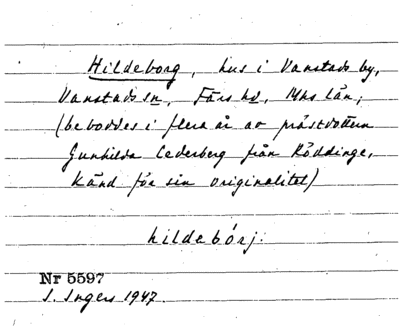 Hildeborg, hus i Vanstads by,
Vanstads sn, Färs hd, Mhs län;
(beboddes i flera år av prästdottern
Gunhilda Cederberg från Röddinge,
känd för sin originalitet)
hildebórj.
Nr 5597
I. Ingers 1947.